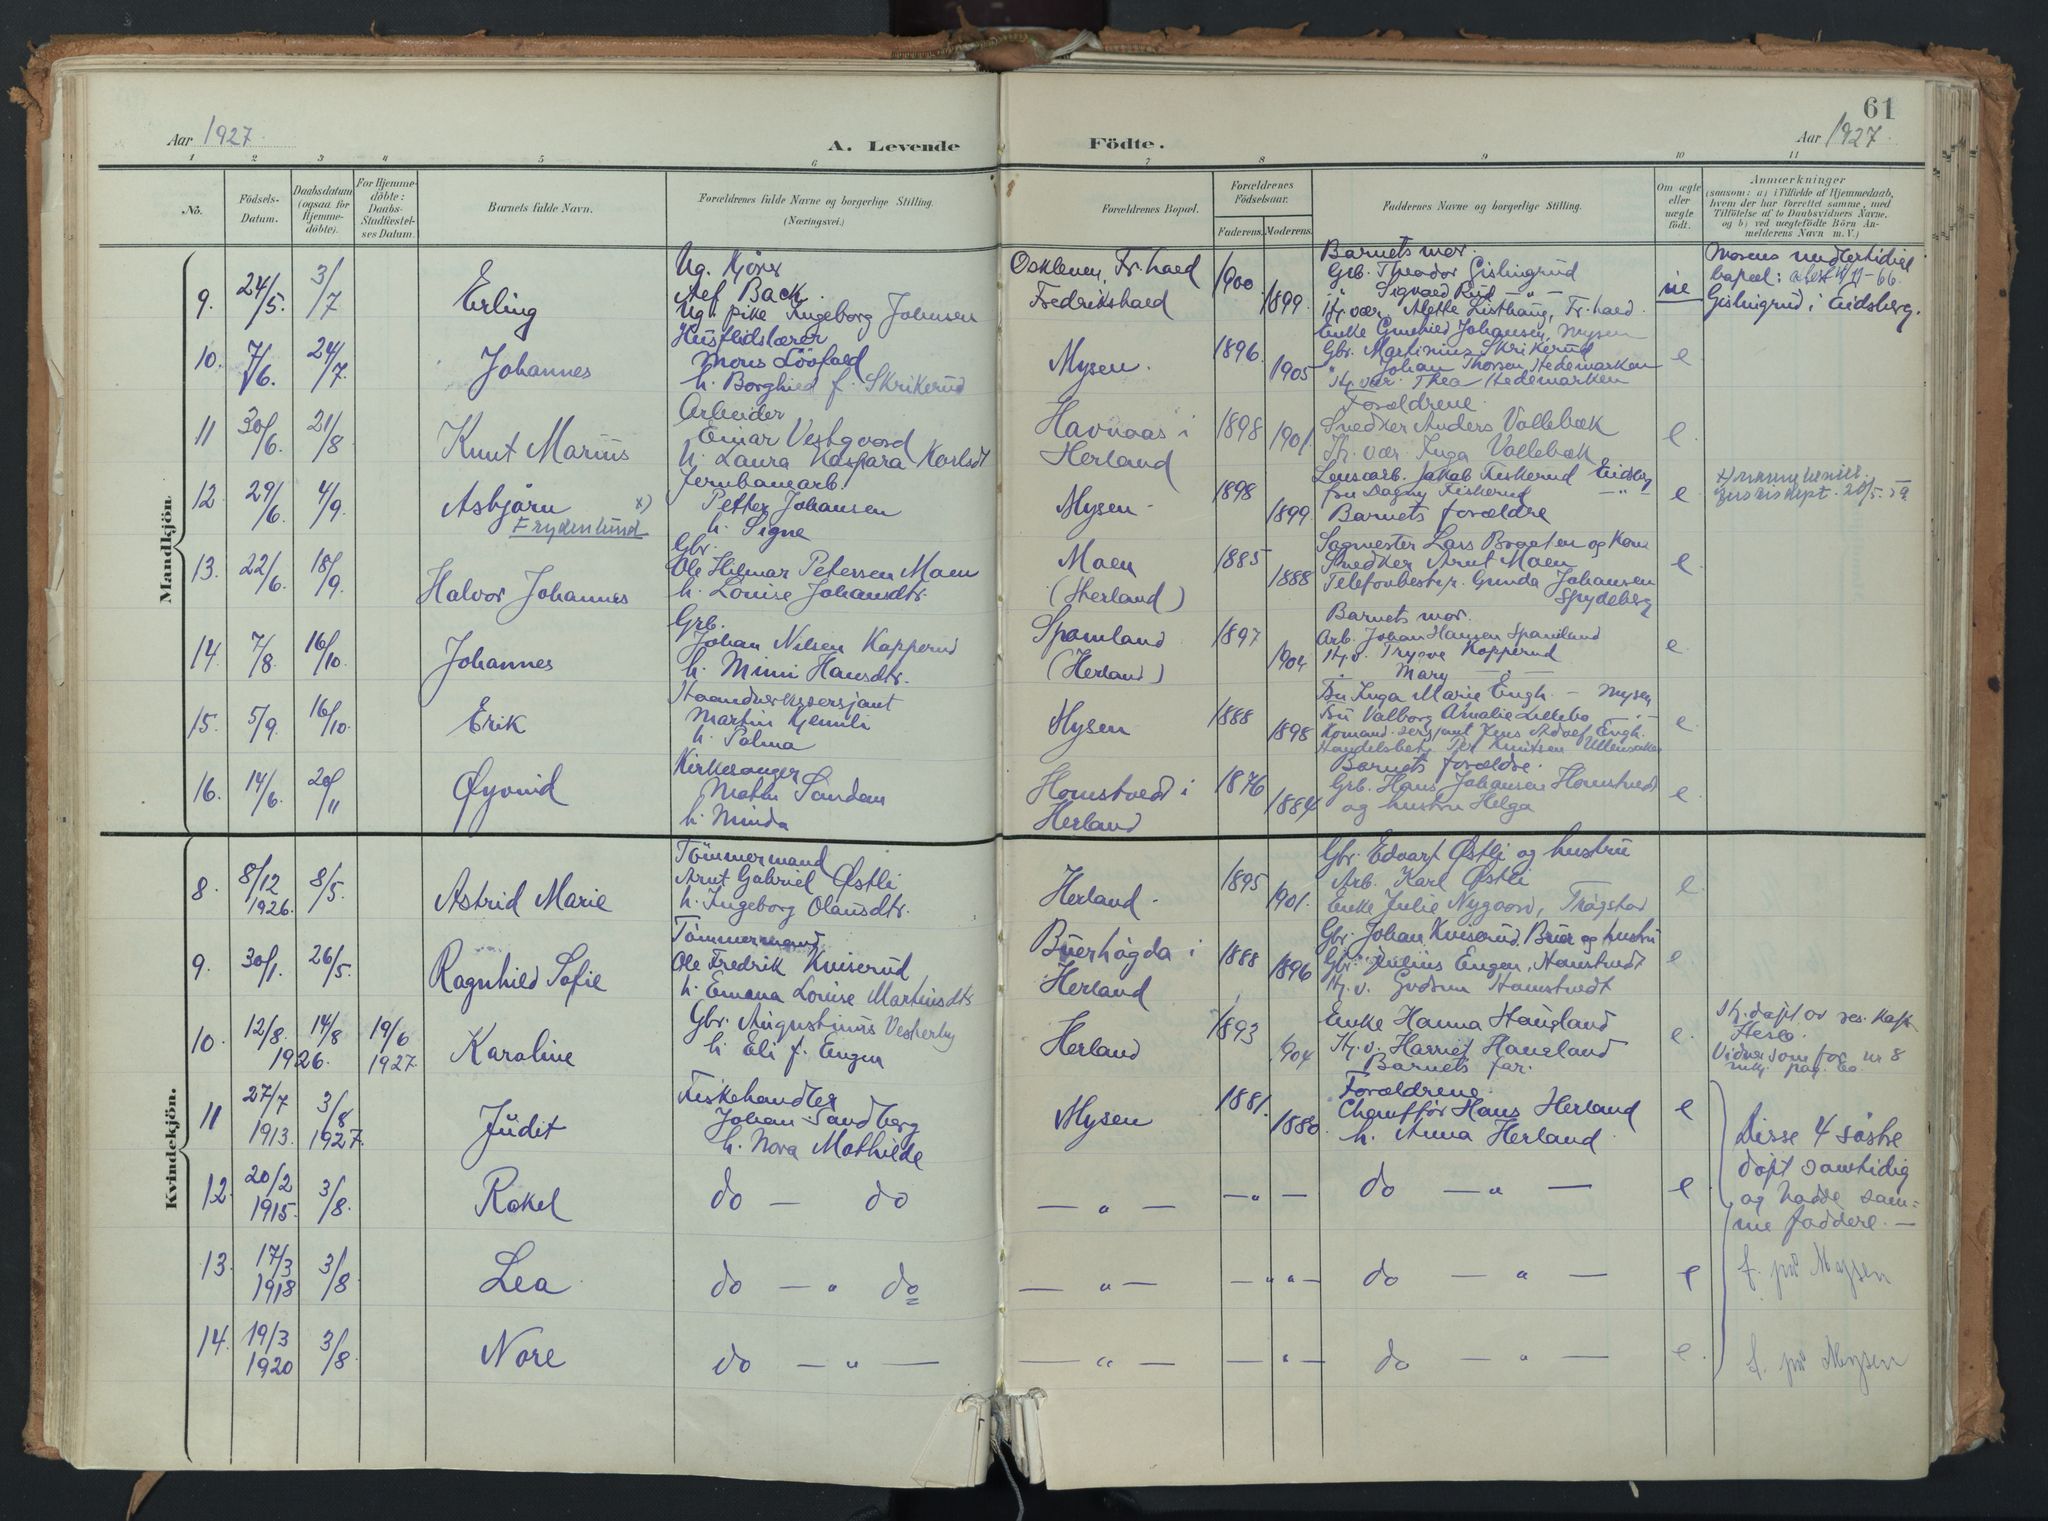 61
Aar 1927
A. Levende
Födte.
Aar 1927
1 2 3 4 5 6 7 8 9 10 11
No.
Födsels-
Datum.
Daabsdatum
(ogsaa for
Hjemme-
döbte).
For Hjemme-
döbte:
Daabs-
Stadfæstel-
ses Datum.
Barnets fulde Navn.
Forældrenes fulde Navne og borgerlige Stilling.
(Næringsvei.)
Forældrenes Bopæl.
Forældrenes
Födselsaar.
Faderens. Moderens.
Faddernes Navne og borgerlige Stilling.
Om ægte
eller
uægte
födt.
Anmærkninger
(saasom: a) i Tilfælde af Hjemmedaab,
hvem der har forrettet samme, med
Tilföielse af to Daabsvidners Navne,
og b) ved uægtefödte Börn An-
melderens Navn m. V.)
Mandkjön.
9. 24/5. 3/7
Erling
Ug.
Back
Ug. pike Ingeborg Johnsen
Fr.hald
Fredrikshald
1900 1899
Barnets mor.
Grb. Theodor Gislingrud
" Sigvald Rud — " —
Alette Listhaug, Fr.hald
ue
Gislingrud i Eidsberg.
10. 7/6. 24/7.
Johannes
Husflidslærer
Mons Lövfald
h. Borghild f. Skrikerud
Mysen.
1896. 1905
Enke Gunhild Johansen, Mysen
Gbr. Martinius Skrikerud
" Johan Thorsen Hedemarken
Thea Hedemarken
e
11 30/6. 21/8
Knut Marius
Arbeider
Einar Vestgaard
h. Laura Kaspara Karlsdt
Havnaas i
Herland
1898 1901.
Forældrene
Snedker Anders Vallebæk
Inga Vallebæk
e
12 29/6 4/9.
Asbjörn x)
Frydenlund
Jernbanearb.
Petter Johansen
h. Signe
Mysen
1898 1899
Jakob Fiskerud Eidsberg
fru Dagny Fiskerud — " —
Barnets forældre
e
20/5. 59
13. 22/6. 18/9.
Halvor Johannes
Gbr.
Ole Hilmar Petersen Moen
h. Louise Johansdtr.
Moen
(Herland)
1885 1888
Sagmester Lars Braaten og kone
Snedker Arnt Moen
Telefonbestyr. Gunda Johansen
Spydeberg
e
14. 7/8. 16/10.
Johannes
Grb.
Johan Nilsen Kapperud
h. Mimi Hansdtr.
Spamland
(Herland)
1897 1904
Barnets mor.
Arb. Johan Hansen Spamland
Trygve Kopperud
Mary
e
15. 5/9. 16/10.
Erik
Haandverksersjant
Martin
h. Palma
Mysen
1888 1898
Fru Inga Marie Engh. — Mysen
Fru Valborg Amalie Lillebo
Adolf Engh.
Handelsbet. Per Knutsen Ullensaker
e
16. 14/6. 20/11
Øyvind
Kirkesanger
h. Minda
Homstvedt i
Herland
1876 1884
Barnets forældre.
Grb. Hans Johansen Homstvedt
og hustru Helga
e
Kvindekjön.
8. 8/12 1926. 8/5.
Astrid Marie
Tömmermand
Arnt Gabriel Østli
h. Ingeborg Olausdtr.
Herland.
1895 1901.
Gbr. Edvart Østli og hustru
Arb. Karl Østli
Enke Julie Nygaard, Trögstad
e
9. 30/1. 26/5.
Ragnhild Sofie
Tömmermand
Ole Fredrik Kviserud
h. Emma Louise Martinsdtr
Buerhögda i
Herland
1888 1896
Gbr. Johan Kviserud, Buer og hustru
Gbr. Julius Engen, Homstvedt
H. v. Gudrun Homstvedt
e
10 12/8. 1926. 14/8 19/6 1927.
Karoline
Gbr. Augustinus Vesterby
h. Eli f. Engen
Herland
1893 1904
Enke Hanna Haugland
H. v. Harriet Haugland
Barnets far.
e.
Hj. döpt av res. kap.
Herlo.
Vidner som for nr 8
pag. 60.
11 27/7 1913. 3/8 1927.
Judit
Fiskehandler
Johan Sandberg
h. Nora Mathilde
Mysen
1881. 1880
Forældrene
Chauffør Hans Herland
h. Anna Herland.
e
Disse 4 söstre
döpt samtidig
og hadde sam-
me faddere. —
12. 20/2 1915. 3/8.
Rakel
do — do
— " —
— " —
do — " —
e
13. 17/3 1918 3/8
Lea
do — " do
— " —
— " " —
do — " —
e
f. på Mysen
14. 19/3 1920 3/8.
Nore
do — " —
— " —
— " —
do — " —
e.
f. på Mysen